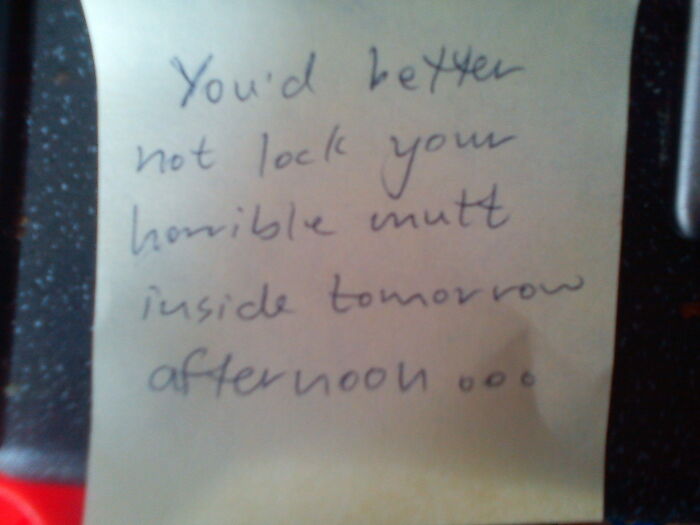 You'd better
not lock your
horrible mutt
inside tomorrow
afternoon...